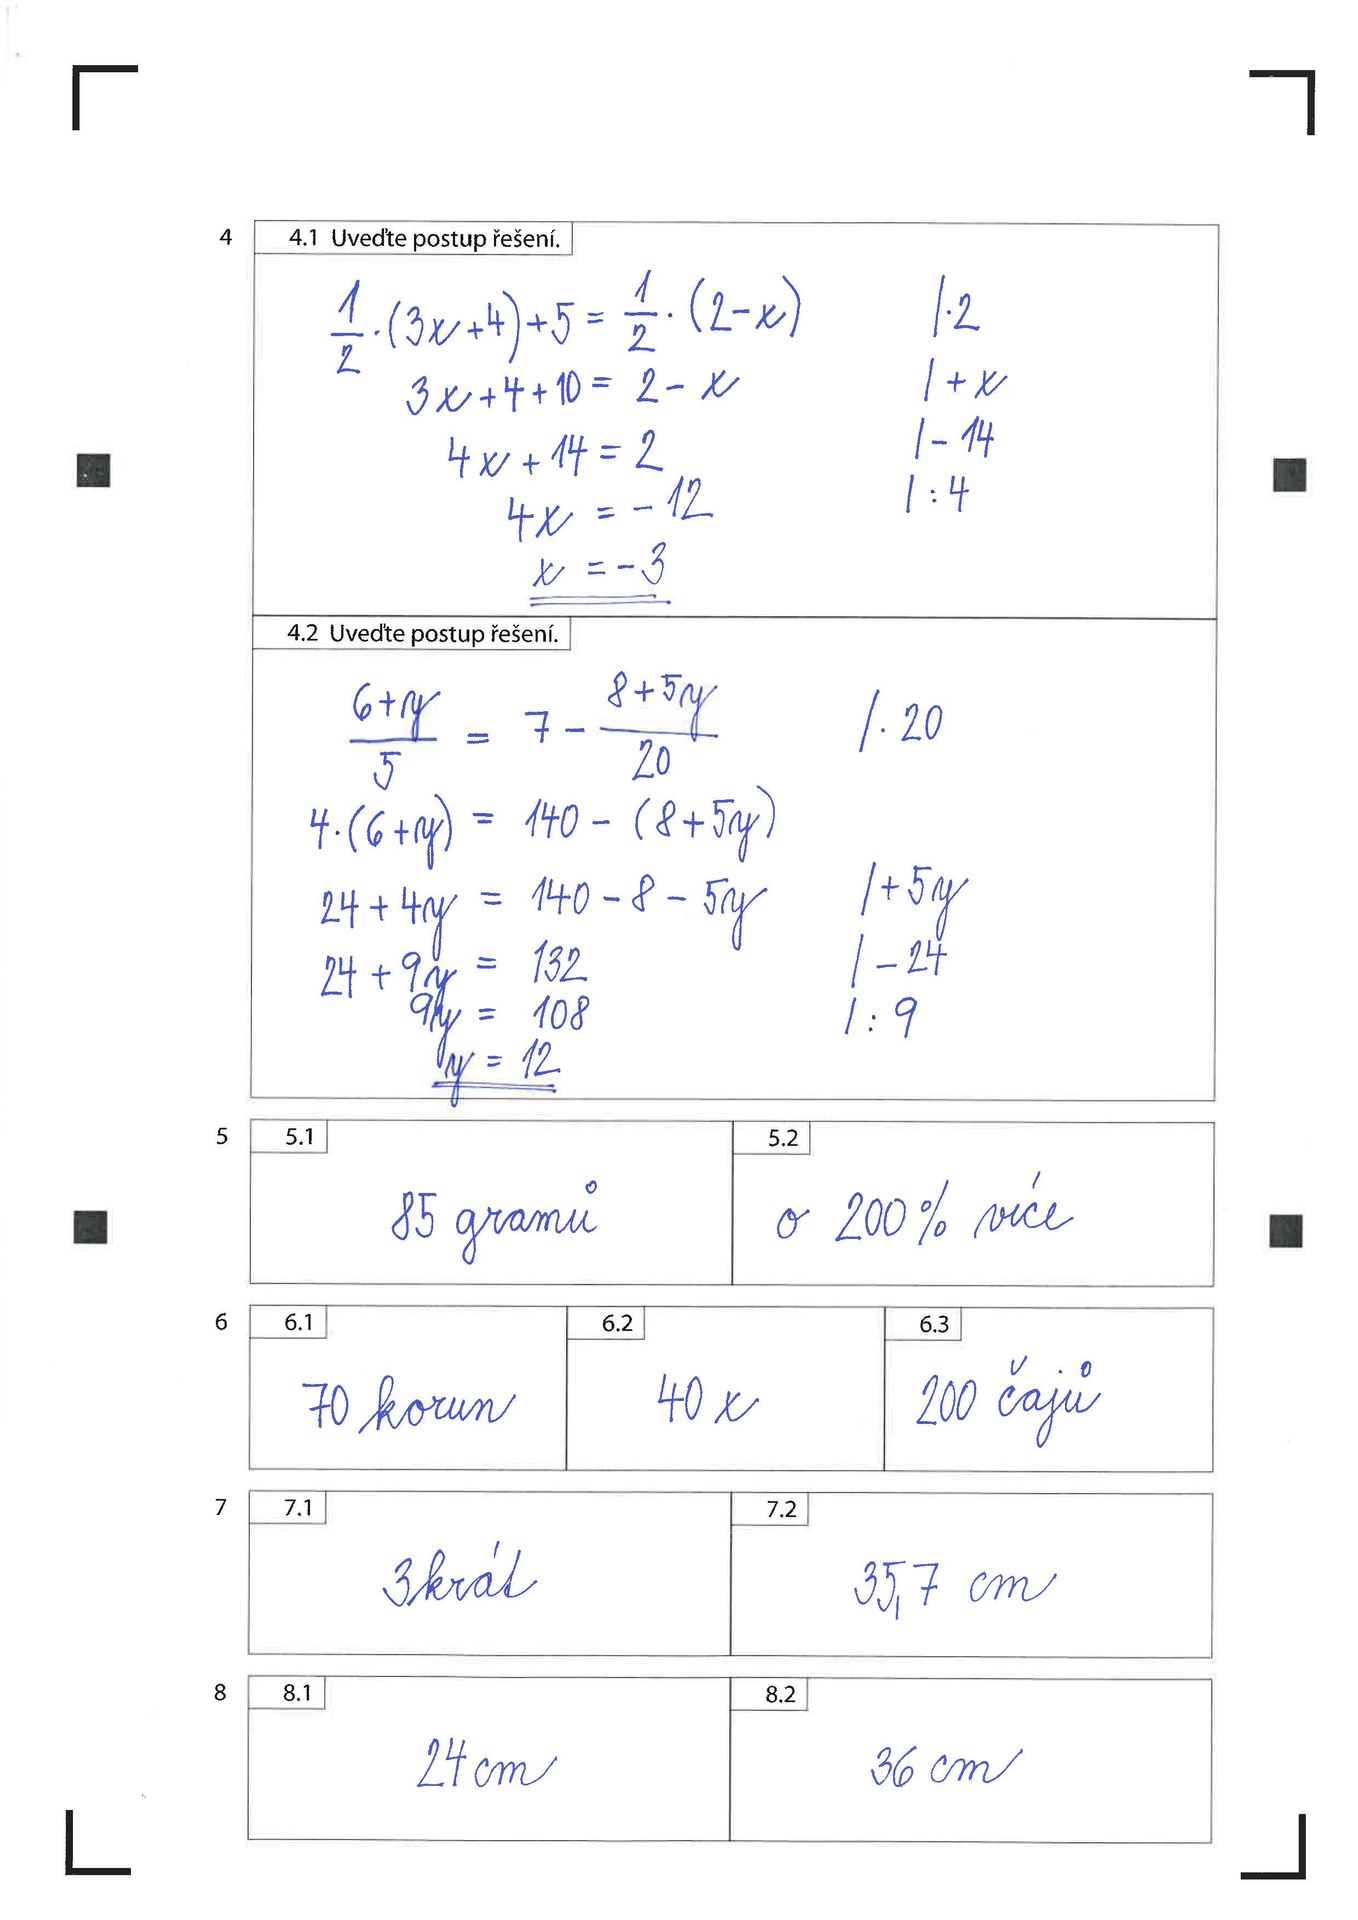 4 4.1 Uveďte postup řešení.
1/2 · (3x+4) + 5 = 1/2 · (2-x) | · 2
3x + 4 + 10 = 2 - x | + x
4x + 14 = 2 | - 14
4x = - 12 | : 4
x = - 3
4.2 Uveďte postup řešení.
6+y/5 = 7 - 8+5y/20 | · 20
4 · (6+y) = 140 - (8+5y)
24 + 4y = 140 - 8 - 5y | + 5y
24 + 9y = 132 | - 24
9y = 108 | : 9
y = 12
5 5.1 5.2
85 gramů o 200 % více
6 6.1 6.2 6.3
70 korun 40 x 200 čajů
7 7.1 7.2
3krát 35,7 cm
8 8.1 8.2
24 cm 36 cm